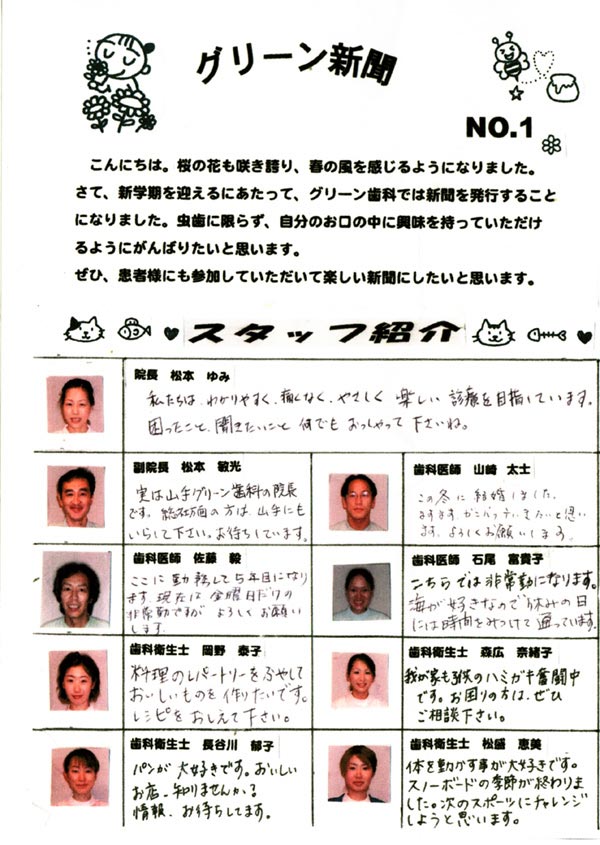 グリーン新聞
NO.1
こんにちは。桜の花も咲き誇り、春の風を感じるようになりました。
さて、新学期を迎えるにあたって、グリーン歯科では新聞を発行すること
になりました。虫歯に限らず、自分のお口の中に興味を持っていただけ
るようにがんばりたいと思います。
ぜひ、患者様にも参加していただいて楽しい新聞にしたいと思います。
スタッフ紹介
院長 松本 ゆみ
私たちは、わかりやすく、痛くなく、やさしく 楽しい 診療を目指しています。
困ったこと、聞きたいこと 何でも おっしゃって 下さいね。
副院長 松本 敏光
実は山手グリーン歯科の院長
です。総社方面の方は 山手にも
いらして下さい。お待ちしています。
歯科医師 山崎 太士
この冬に 結婚しました。
ますます、がんばっていきたいと思い
ます。よろしくお願いします。
歯科医師 佐藤 毅
ここに 勤務して 5年目になり
ます。現在は 金曜日だけの
非常勤ですが よろしく お願い
します。
歯科医師 石尾 富貴子
こちらでは非常勤になります。
海が好きなので休みの日
には時間をみつけて 通っています。
歯科衛生士 岡野 泰子
料理のレパートリーをふやして
おいしいものを作りたいです。
レシピをおしえて下さい。
歯科衛生士 森広 奈緒子
我が家も3人のハミガキ奮闘中
です。お困りの方は、ぜひ
ご相談下さい。
歯科衛生士 長谷川 郁子
パンが 大好きです。おいしい
お店、知りませんか?
情報、お待ちしてます。
歯科衛生士 松盛 恵美
体を動かす事が大好きです。
スノーボードの季節が終わりま
した。次のスポーツにチャレンジ
しようと思います。